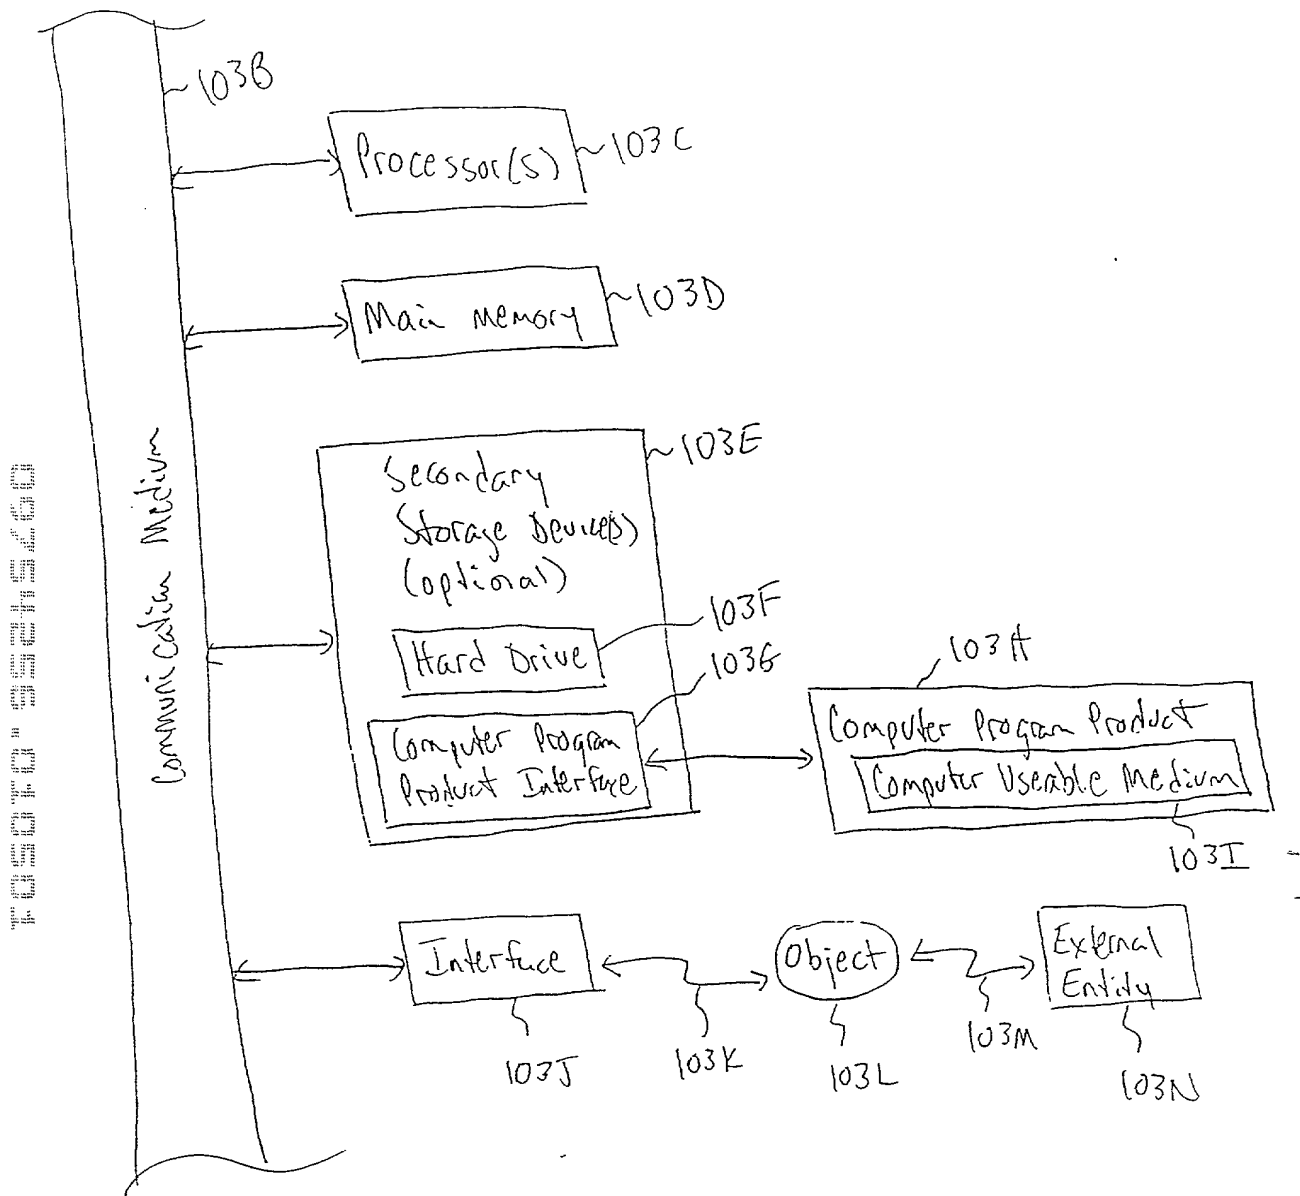 103B
Processor(s)
103C
Main Memory
103D
Communication Medium
103E
Secondary
Storage Device(s)
(optional)
103F
Hard Drive
103G
Computer Program
Product Interface
103H
Computer Program Product
Computer Useable Medium
103I
Interface
Object
External
Entity
103J
103K
103L
103M
103N
09754256.010501